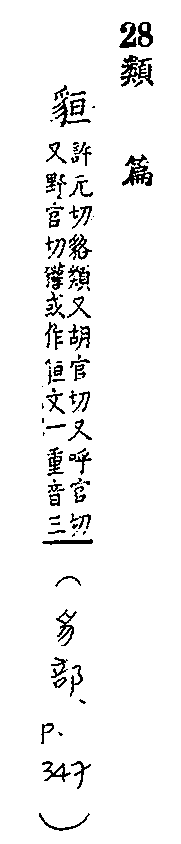 28類篇
貆
許元切貉類又胡官切又呼官切
又野官切貛或作狟文一重音三
(豸部、p.347)